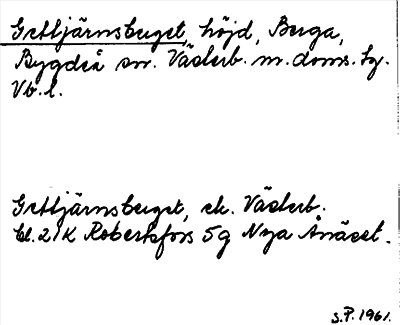 Gettjärnsberget, höjd, Berga,
Bygdeå sn. Västerb. m. doms. tg.
Vb. l.
Gettjärnsberget, ek. Västerb.
bl. 21K Robertsfors 5g Nya Ånäset.
S.P. 1961.